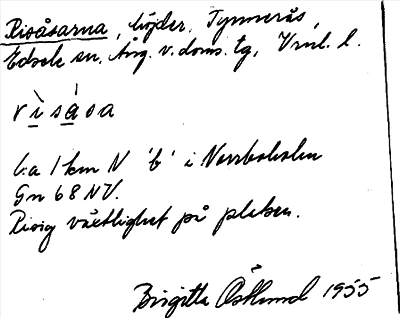 Risåsarna, höjder, Tynnerås,
Edsele sn, Ång. v. doms. tg, Vnl. l.
rìsàsa
C:a 1 km N 'b' i Norrboholm
Gn 68 NV.
Risig växtlighet på platsen.
Birgitta Östlund 1955